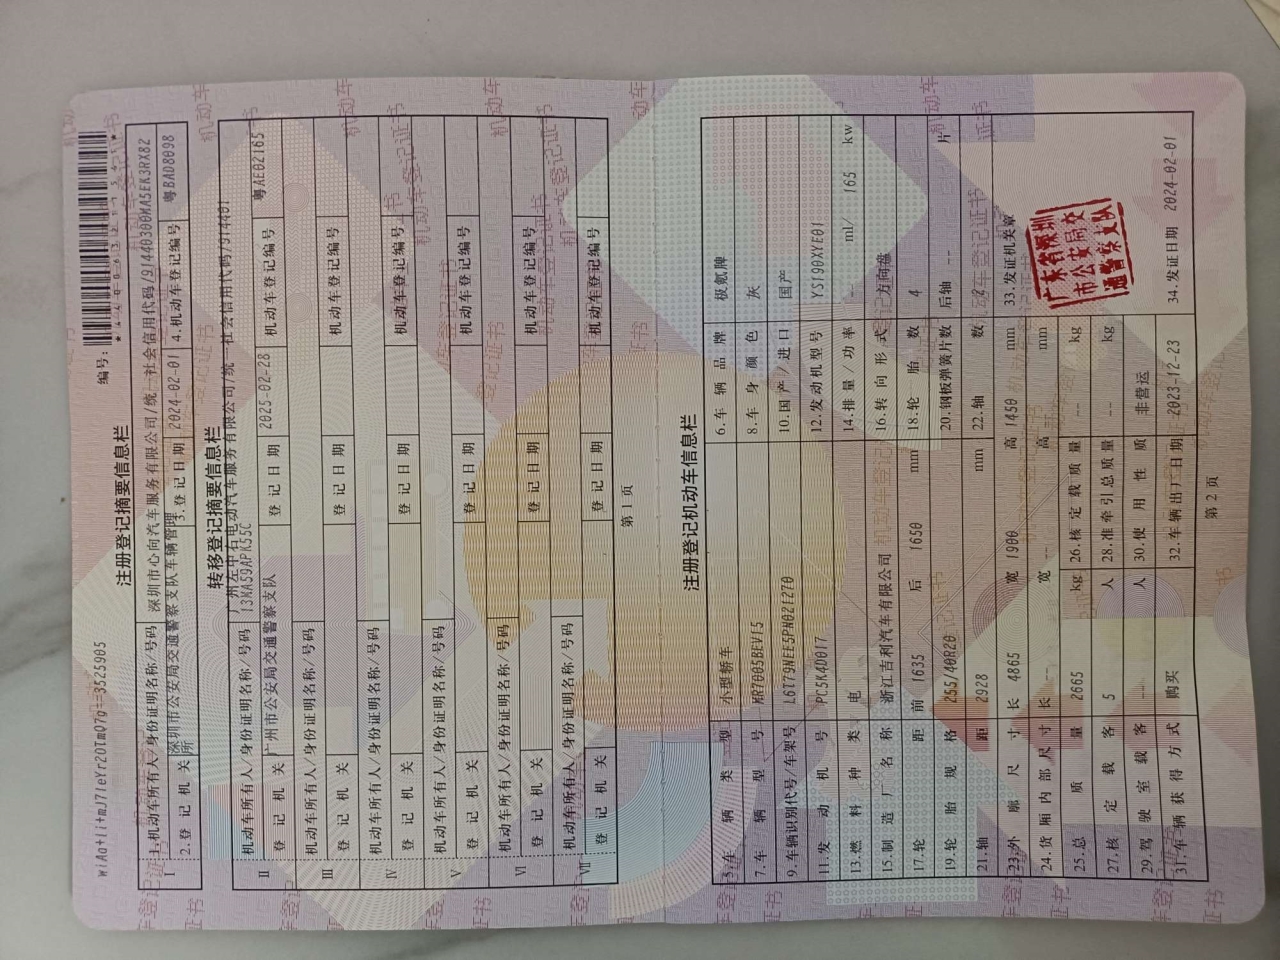 wiAa+Ii+mJ7IeYr2OTmQ7g==3525905
编号:
注册登记摘要信息栏
Ⅰ
1.机动车所有人/身份证明名称/号码 深圳市心向汽车服务有限公司/统一社会信用代码/91440300MA5EK3RX82
2.登记机关 深圳市公安局交通警察支队车辆管理所 3.登记日期 2024-02-01 4.机动车登记编号 粤BAD8098
转移登记摘要信息栏
Ⅱ
机动车所有人/身份证明名称/号码 广州左中右电动汽车服务有限公司/统一社会信用代码/91440113MA59APK55C
登记机关 广州市公安局交通警察支队 登记日期 2025-02-28 机动车登记编号 粤AE02165
Ⅲ
机动车所有人/身份证明名称/号码
登记机关 登记日期 机动车登记编号
Ⅳ
机动车所有人/身份证明名称/号码
登记机关 登记日期 机动车登记编号
Ⅴ
机动车所有人/身份证明名称/号码
登记机关 登记日期 机动车登记编号
Ⅵ
机动车所有人/身份证明名称/号码
登记机关 登记日期 机动车登记编号
Ⅶ
机动车所有人/身份证明名称/号码
登记机关 登记日期 机动车登记编号
第 1 页
注册登记机动车信息栏
5.车辆类型 小型轿车 6.车辆品牌 极氪牌
7.车辆型号 MR7005BEV15 8.车身颜色 灰
9.车辆识别代号/车架号 L6T79NEE5PN021270 10.国产/进口 国产
11.发动机号 PC5K4D017 12.发动机型号 YS190XYE01
13.燃料种类 电 14.排量/功率 -- ml/ 165 kw
15.制造厂名称 浙江吉利汽车有限公司 16.转向形式 方向盘
17.轮距 前 1635 后 1650 mm 18.轮胎数 4
19.轮胎规格 255/40R20 20.钢板弹簧片数 后轴 -- 片
21.轴距 2928 mm 22.轴数 2
23.外廓尺寸 长 4865 宽 1900 高 1450 mm 33.发证机关章
24.货厢内部尺寸 长 -- 宽 -- 高 -- mm
25.总质量 2665 kg 26.核定载质量 -- kg
27.核定载客 5 人 28.准牵引总质量 -- kg
29.驾驶室载客 -- 人 30.使用性质 非营运
31.车辆获得方式 购买 32.车辆出厂日期 2023-12-23 34.发证日期 2024-02-01
广东省深圳
市公安局交
通警察支队
第 2 页